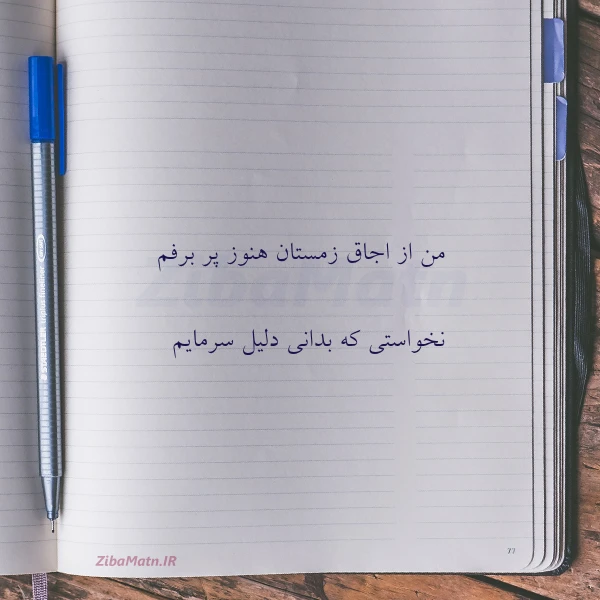 من از اجاق زمستان هنوز پر برفم
ZibaMatn
نخواستی که بدانی دلیل سرمایم
ZibaMatn.IR
77